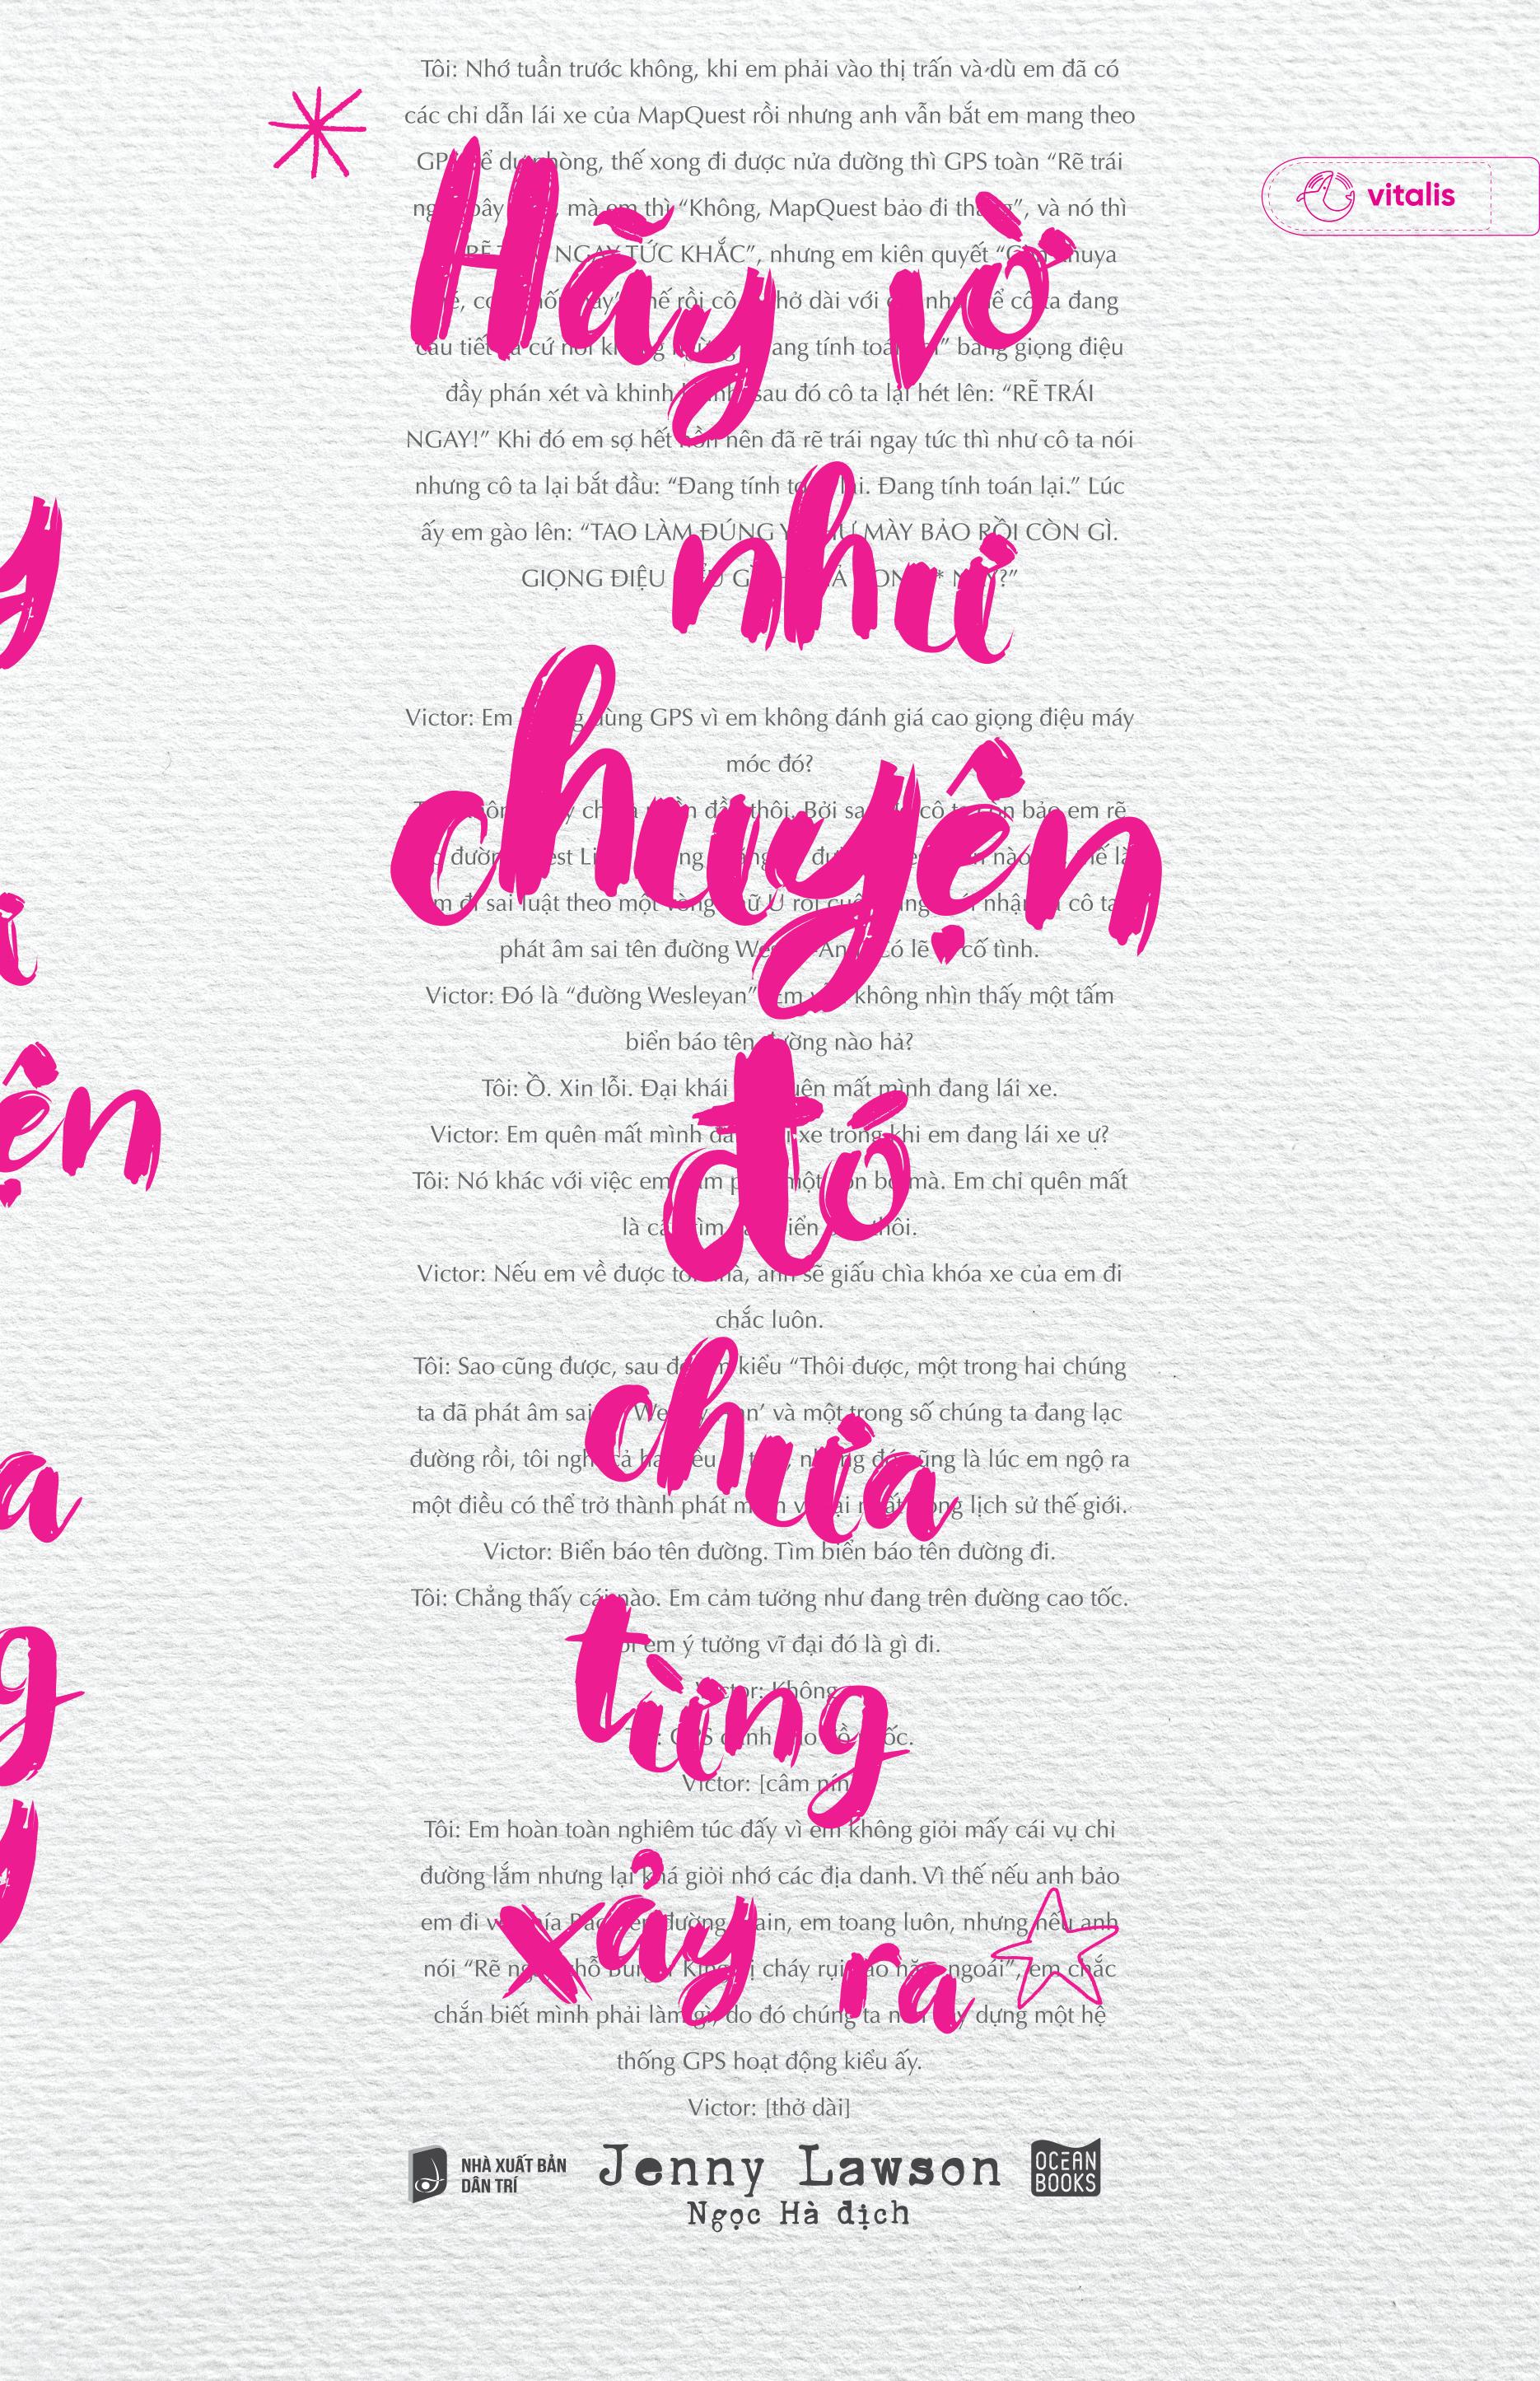 Tôi: Nhớ tuần trước không, khi em phải vào thị trấn và dù em đã có
các chỉ dẫn lái xe của MapQuest rồi nhưng anh vẫn bắt em mang theo
phòng, thế xong đi được nửa đường thì GPS toàn “Rẽ trái
vitalis
Hãy vờ
mà em thì “Không, MapQuest bảo đi và nó thì
NGAY TỨC KHẮC”, nhưng em kiên quyết
rồi cô đang
tiết cứ giọng điệu
đầy phán xét và khinh sau đó cô ta lại hét lên: “RẼ TRÁI
NGAY!” Khi đó em sợ hết hồn nên đã rẽ trái ngay tức thì như cô ta nói
như
nhưng cô ta lại bắt đầu: “Đang tính lại. Đang tính toán lại.” Lúc
ấy em gào lên: “TAO LÀM ĐÚNG MÀY BẢO RỒI CÒN GÌ.
GIỌNG ĐIỆU
chuyện
Victor: Em dùng GPS vì em không đánh giá cao giọng điệu máy
móc đó?
thôi. Bởi cô bảo em rẽ
sai luật theo một nhận cô ta
phát âm sai tên đường Có lẽ cố tình.
Victor: Đó là “đường Wesleyan” không nhìn thấy một tấm
biển báo tên đường nào hả?
đó
Tôi: Ồ. Xin lỗi. Đại khái mất mình đang lái xe.
Victor: Em quên mất mình xe trong khi em đang lái xe ư?
Tôi: Nó khác với việc em một mà. Em chỉ quên mất
là thôi.
Victor: Nếu em về được anh sẽ giấu chìa khóa xe của em đi
chắc luôn.
chưa
Tôi: Sao cũng được, sau kiểu “Thôi được, một trong hai chúng
ta đã phát âm sai và một trong số chúng ta đang lạc
đường rồi, tôi cũng là lúc em ngộ ra
một điều có thể trở thành phát lịch sử thế giới.
Victor: Biển báo tên đường. Tìm biển báo tên đường đi.
Tôi: Chẳng thấy cái nào. Em cảm tưởng như đang trên đường cao tốc.
từng
em ý tưởng vĩ đại đó là gì đi.
Victor: Không
Victor: [câm nín
Tôi: Em hoàn toàn nghiêm túc đấy vì em không giỏi mấy cái vụ chỉ
đường lắm nhưng lại khá giỏi nhớ các địa danh. Vì thế nếu anh bảo
xảy ra
em đi đường em toang luôn, nhưng nếu anh
nói “Rẽ cháy rụi ngoái”, em chắc
chắn biết mình phải làm gì, do đó chúng ta dựng một hệ
thống GPS hoạt động kiểu ấy.
Victor: [thở dài]
NHÀ XUẤT BẢN
DÂN TRÍ
Jenny Lawson
Ngọc Hà dịch
OCEAN
BOOKS